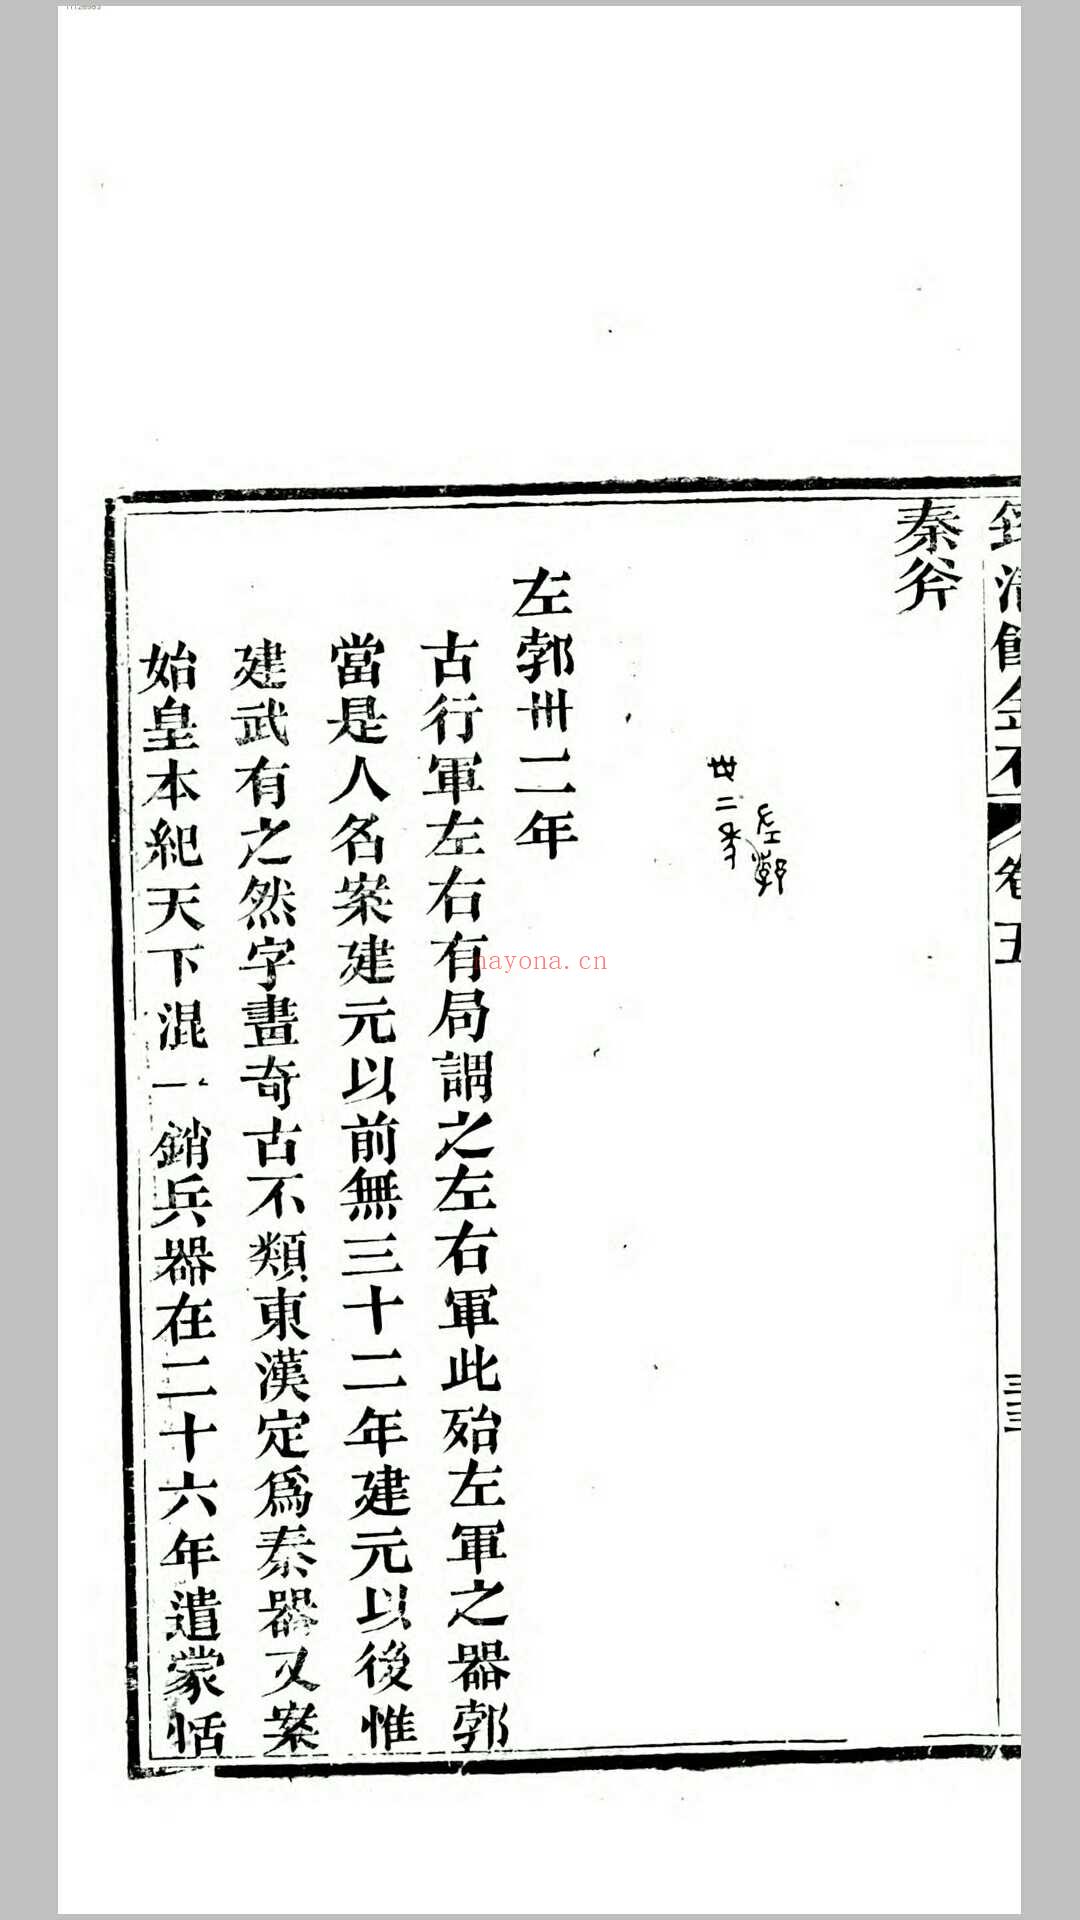 秦斧
左郭
卅二年
左郭卅二年
古行軍左右有局謂之左右軍此殆左軍之器郭
當是人名案建元以前無三十二年建元以後惟
建武有之然字畫奇古不類東漢定爲秦器又案
始皇本紀天下混一銷兵器在二十六年遣蒙恬
卷五
nayona.cn